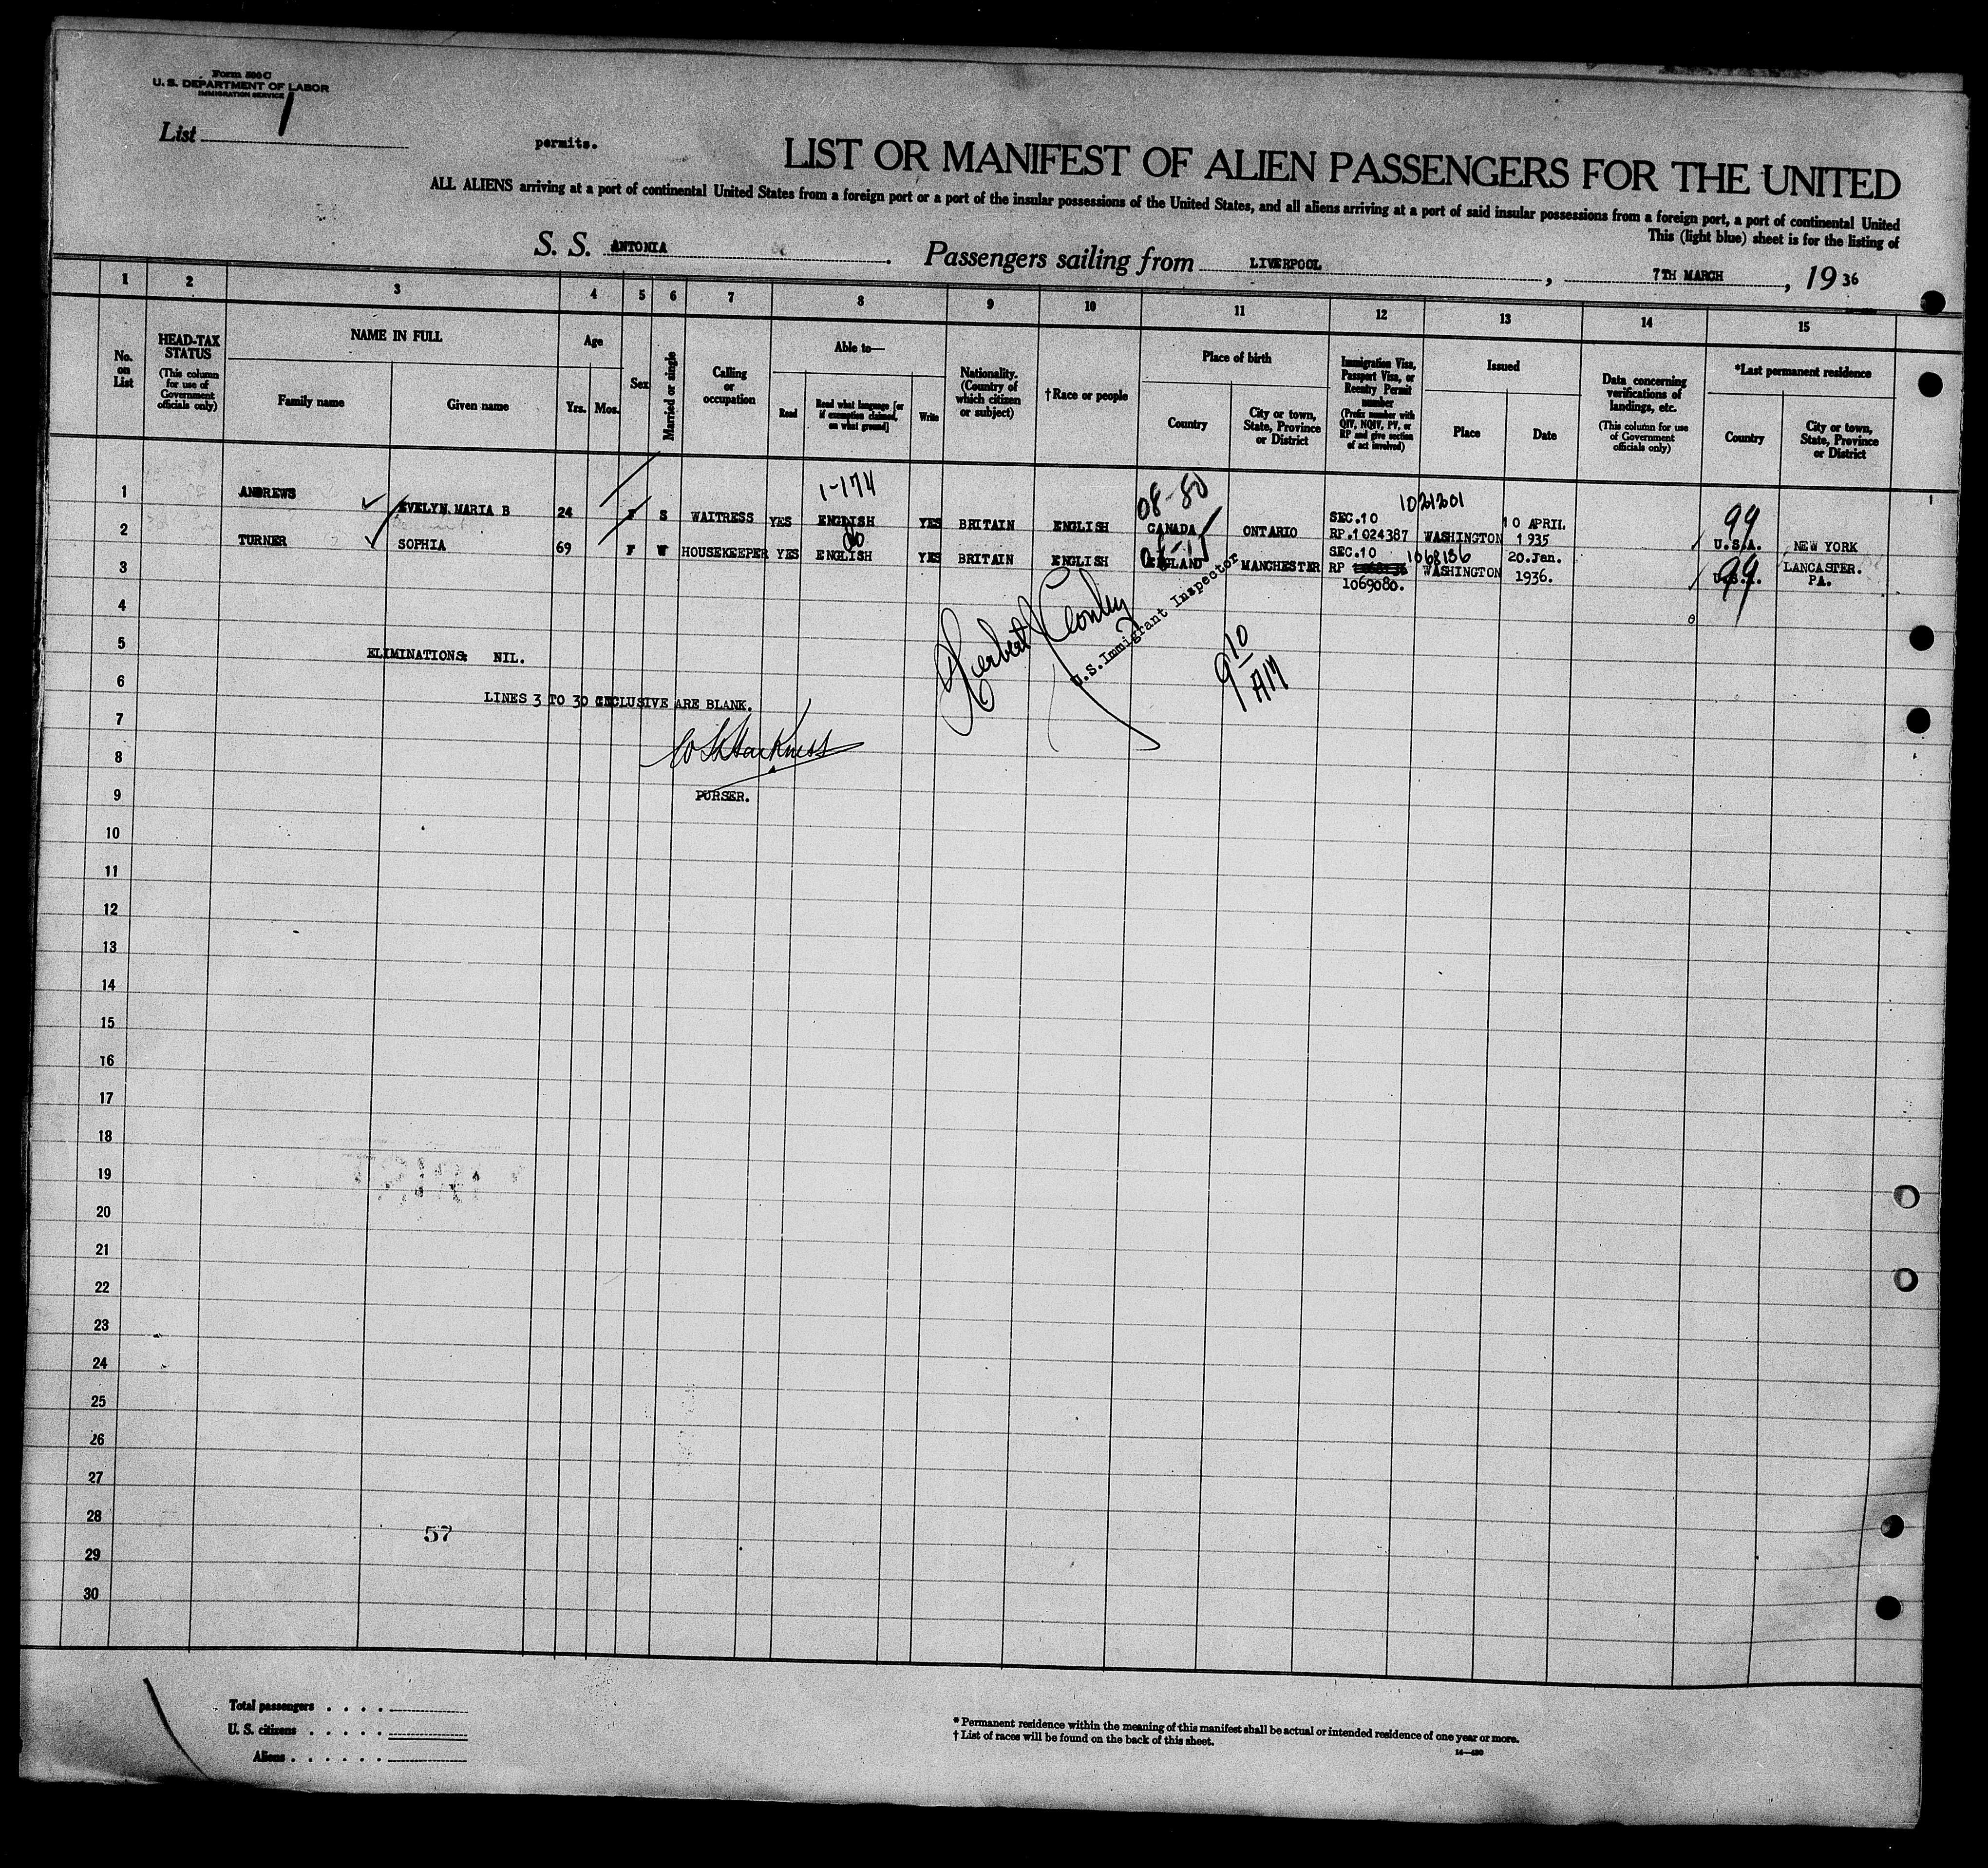 Form 500 C
U. S. DEPARTMENT OF LABOR
IMMIGRATION SERVICE
List 1
permits.
LIST OR MANIFEST OF ALIEN PASSENGERS FOR THE UNITED
ALL ALIENS arriving at a port of continental United States from a foreign port or a port of the insular possessions of the United States, and all aliens arriving at a port of said insular possessions from a foreign port, a port of continental United
This (light blue) sheet is for the listing of
S. S. ANTONIA Passengers sailing from LIVERPOOL, 7TH MARCH, 1936
1 2 3 4 5 6 7 8 9 10 11 12 13 14 15
No. on List
HEAD-TAX STATUS
(This column for use of Government officials only)
NAME IN FULL
Family name Given name
Age
Yrs. Mos.
Sex
Married or single
Calling or occupation
Able to—
Read
Read what language [or if exemption claimed, on what ground]
Write
Nationality. (Country of which citizen or subject)
†Race or people
Place of birth
Country
City or town, State, Province or District
Immigration Visa, Passport Visa, or Reentry Permit number
(Prefix number with QIV, NQIV, PV, or RP and give section of act involved)
Issued
Place Date
Data concerning verifications of landings, etc.
(This column for use of Government officials only)
*Last permanent residence
Country
City or town, State, Province or District
1-174 08-80 1021201 99
1 ANDREWS EVELYN MARIA B 24 F S WAITRESS YES ENGLISH YES BRITAIN ENGLISH CANADA ONTARIO SEC.10 RP.1024387 WASHINGTON 10 APRIL 1935 U.S.A. NEW YORK
2 TURNER SOPHIA 69 F W HOUSEKEEPER YES ENGLISH YES BRITAIN ENGLISH ENGLAND MANCHESTER SEC.10 RP 1068136 1069080. WASHINGTON 20.Jan. 1936. U.S.A. LANCASTER. PA.
99
1
3
4
5
ELIMINATIONS: NIL.
U.S.Immigrant Inspector
9 10 AM
6
LINES 3 TO 30 INCLUSIVE ARE BLANK.
7
8
PURSER.
9
10
11
12
13
14
15
16
17
18
19
20
21
22
23
24
25
26
27
28
57
29
30
Total passengers . . . .
U. S. citizens . . . . .
Aliens . . . . . .
* Permanent residence within the meaning of this manifest shall be actual or intended residence of one year or more.
† List of races will be found on the back of this sheet.